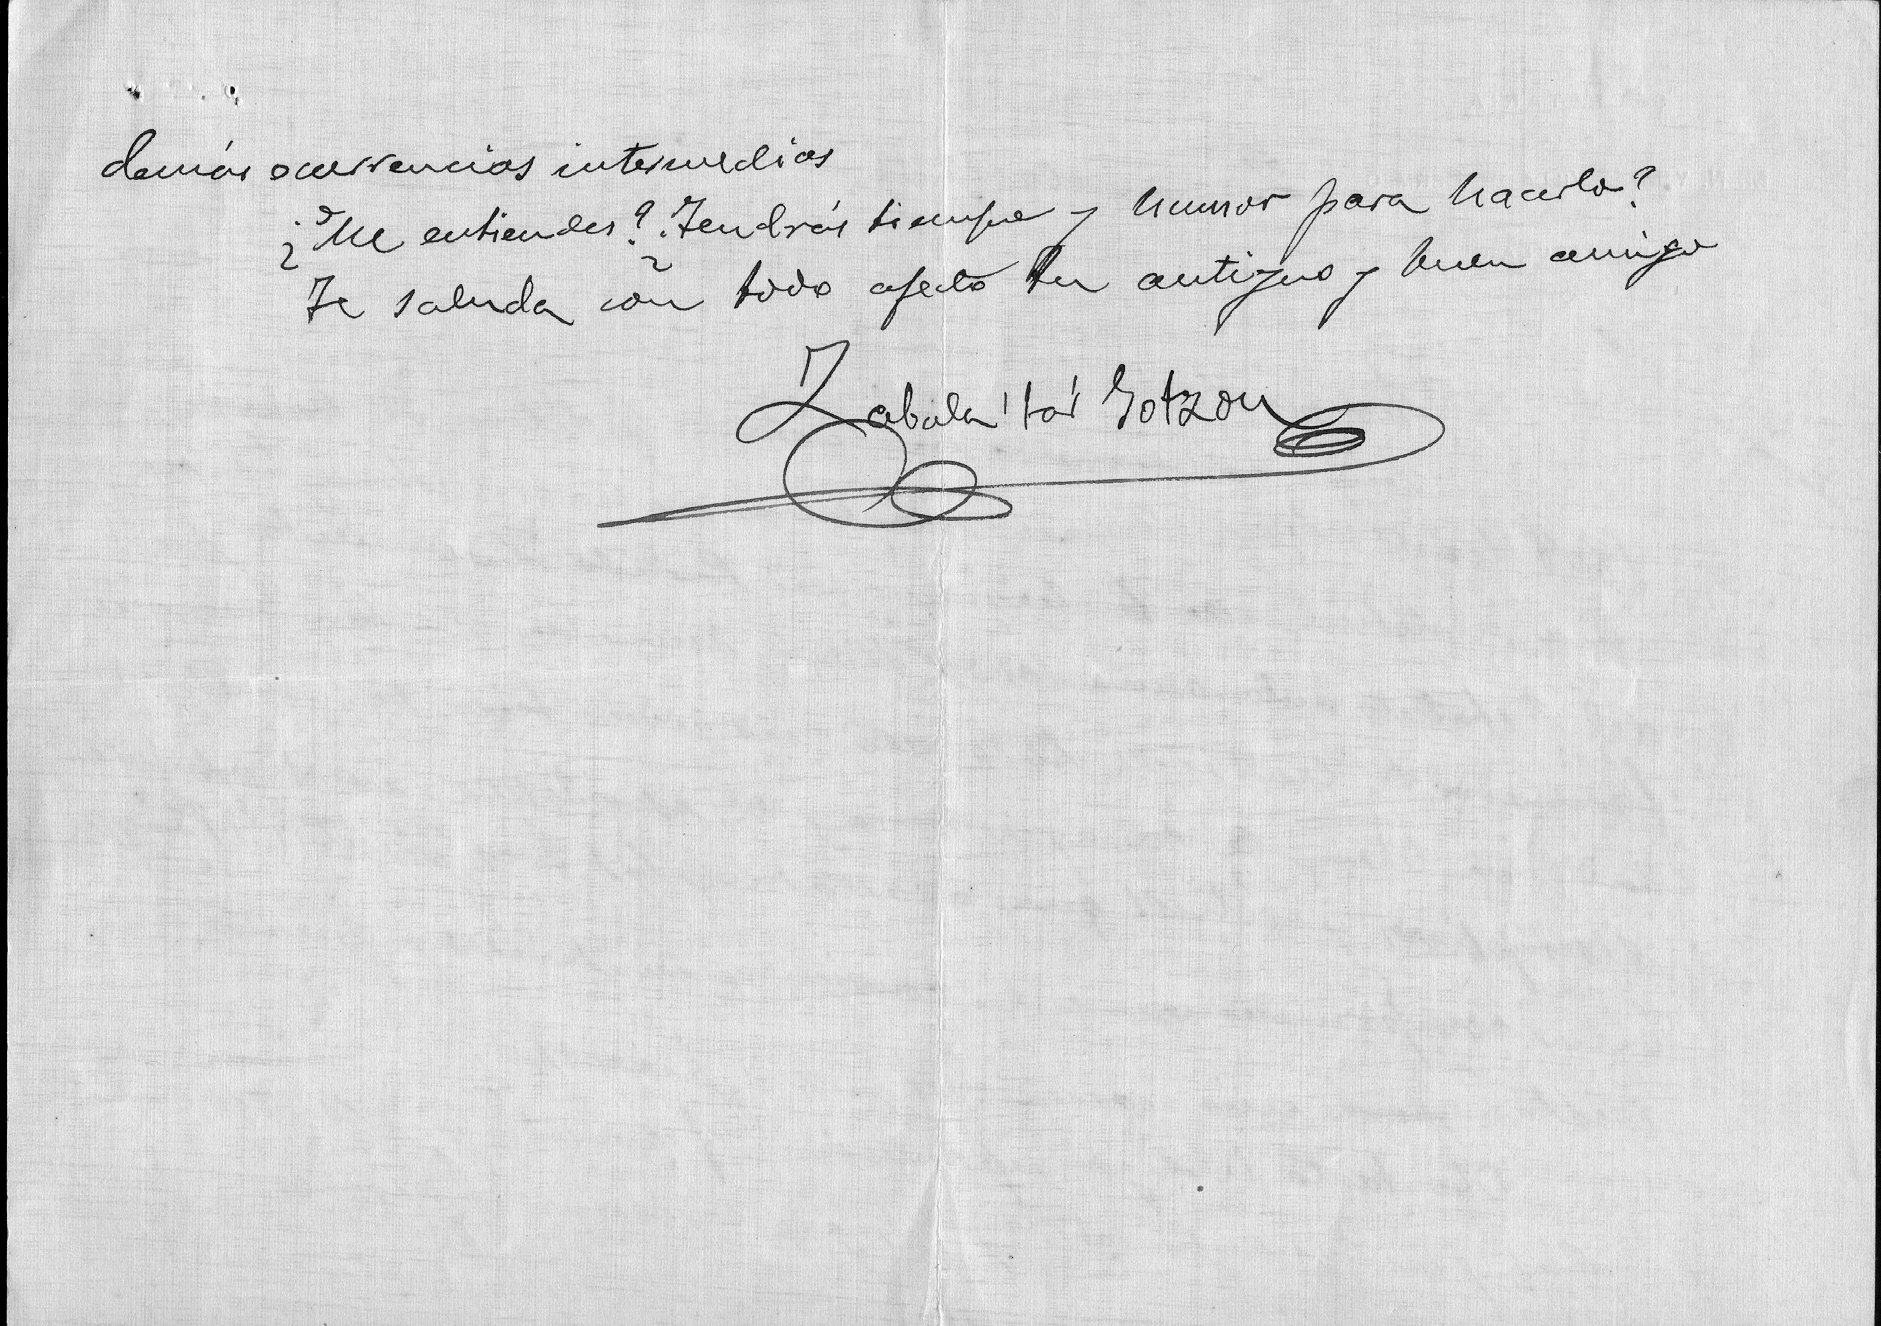 demás ocurrencias intermedias
¿Me entiendes? ¿Tendrás tiempo y humor para hacerlo?
Te saluda con todo afecto tu antiguo y buen amigo
Zabala'tar Gotzon